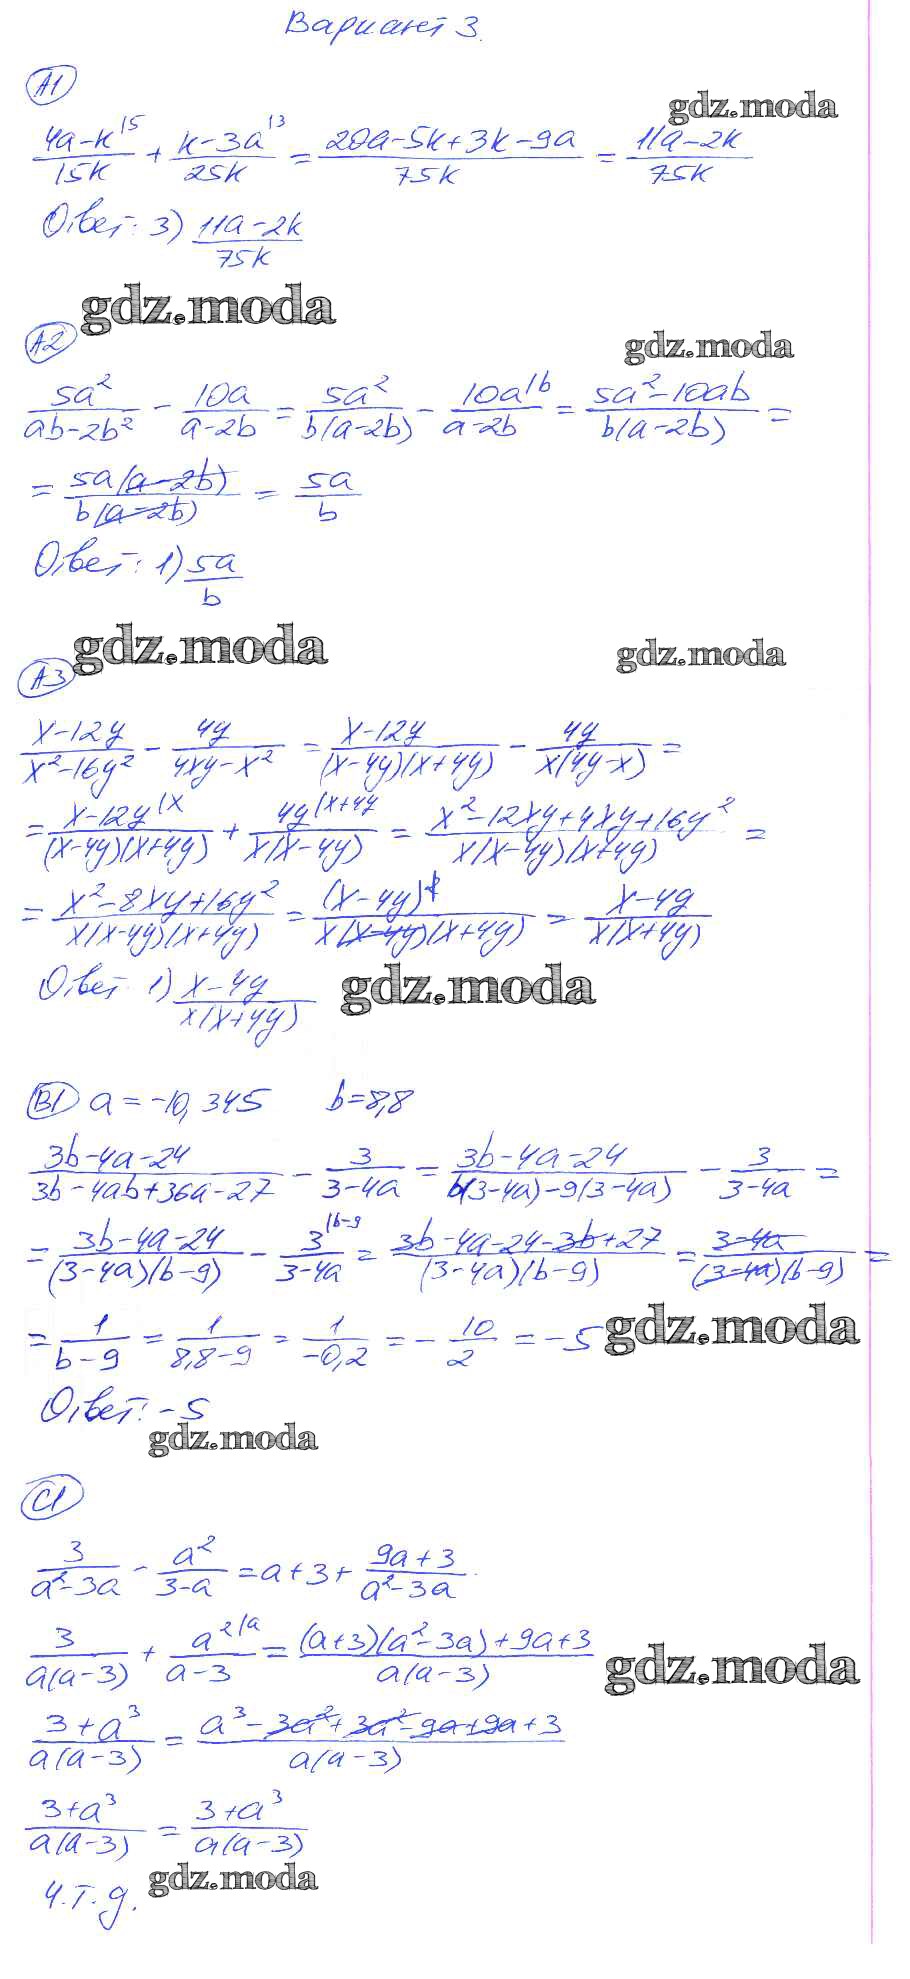 Вариант 3.
A1
gdz.moda
(4a-k)/15k |5 + (k-3a)/25k |3 = (20a-5k+3k-9a)/75k = (11a-2k)/75k
Ответ: 3) (11a-2k)/75k
gdz.moda
A2
gdz.moda
5a²/(ab-2b²) - 10a/(a-2b) = 5a²/(b(a-2b)) - 10a/(a-2b) |b = (5a²-10ab)/(b(a-2b)) =
= 5a(a-2b)/(b(a-2b)) = 5a/b
Ответ: 1) 5a/b
gdz.moda
gdz.moda
A3
(x-12y)/(x²-16y²) - 4y/(4xy-x²) = (x-12y)/((x-4y)(x+4y)) - 4y/(x(4y-x)) =
= (x-12y)/((x-4y)(x+4y)) |x + 4y/(x(x-4y)) |x+4y = (x²-12xy+4xy+16y²)/(x(x-4y)(x+4y)) =
= (x²-8xy+16y²)/(x(x-4y)(x+4y)) = (x-4y)²/(x(x-4y)(x+4y)) = (x-4y)/(x(x+4y))
Ответ 1) (x-4y)/(x(x+4y))
gdz.moda
B1 a=-10,345 b=8,8
(3b-4a-24)/(3b-4ab+36a-27) - 3/(3-4a) = (3b-4a-24)/(b(3-4a)-9(3-4a)) - 3/(3-4a) =
= (3b-4a-24)/((3-4a)(b-9)) - 3/(3-4a) |b-9 = (3b-4a-24-3b+27)/((3-4a)(b-9)) = (3-4a)/((3-4a)(b-9)) =
= 1/(b-9) = 1/(8,8-9) = 1/(-0,2) = -10/2 = -5
gdz.moda
Ответ: -5
gdz.moda
C1
3/(a²-3a) - a²/(3-a) = a+3+(9a+3)/(a²-3a).
3/(a(a-3)) + a²/(a-3) |a = ((a+3)(a²-3a)+9a+3)/(a(a-3))
gdz.moda
(3+a³)/(a(a-3)) = (a³-3a²+3a²-9a+9a+3)/(a(a-3))
(3+a³)/(a(a-3)) = (3+a³)/(a(a-3))
gdz.moda
ч.т.д.